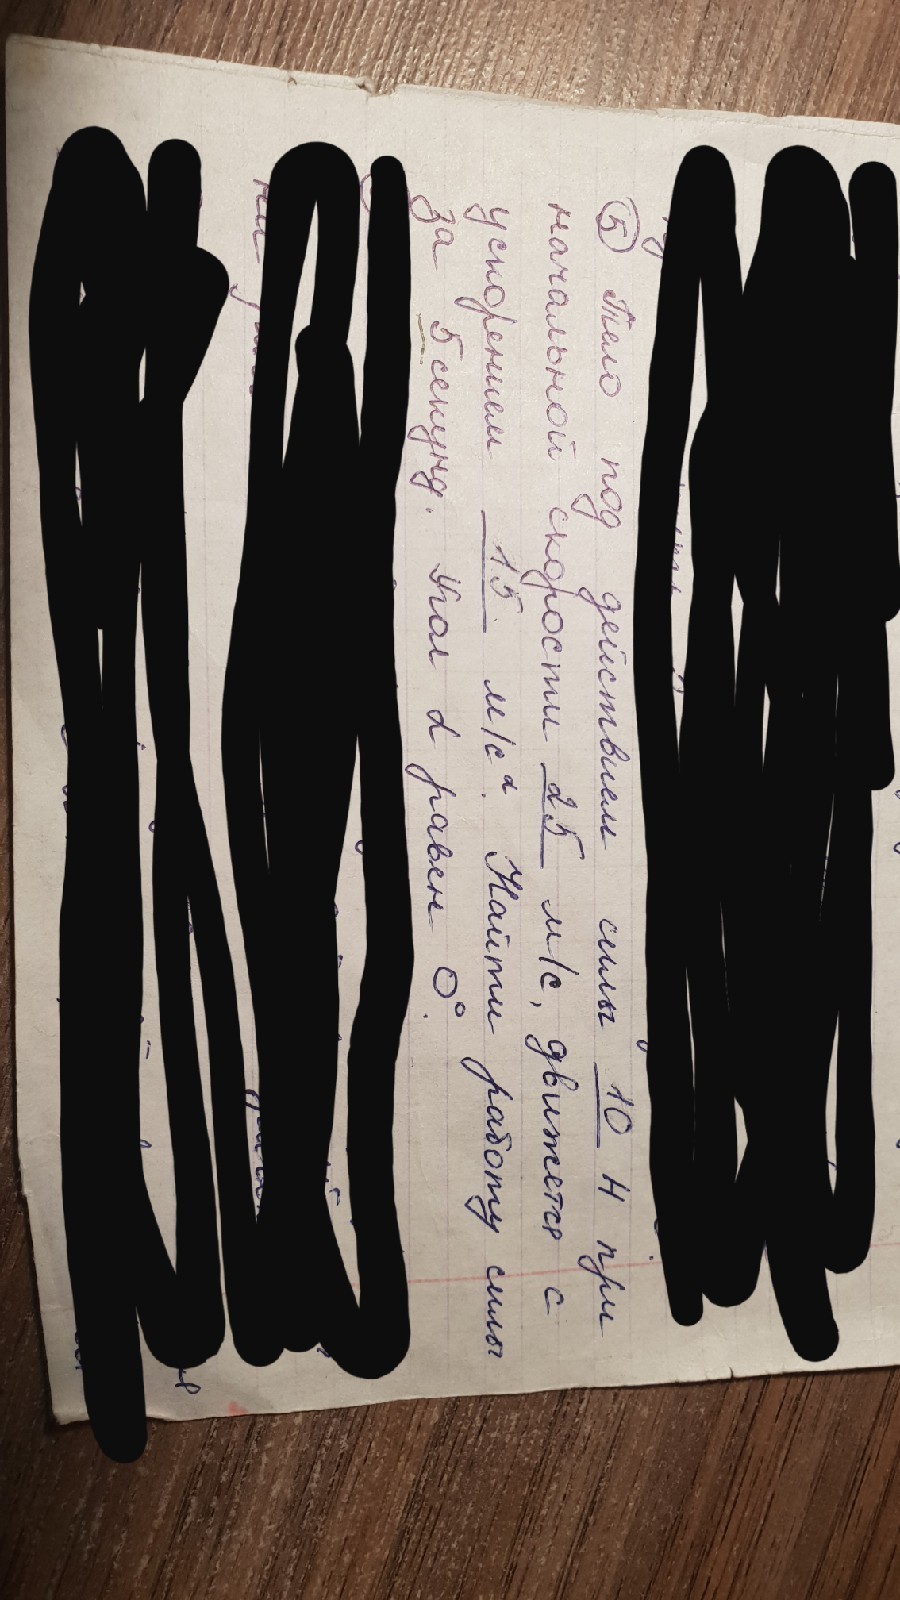 ⑤ Тело под действием силы 10 Н при
начальной скорости 25 м/с, движется с
ускорением 15 м/с². Найти работу силы
за 5 секунд. Угол α равен 0°.